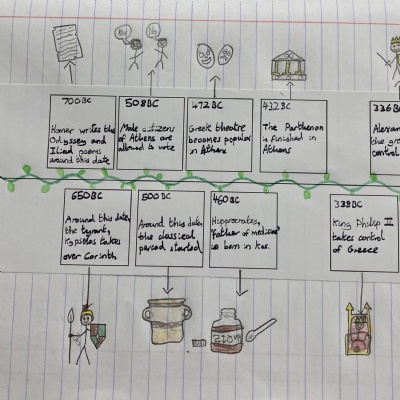 700BC
Homer writes the
Odyssey and
Iliad poems
around this date
508BC
Male citizens
of Athens are
allowed to vote
472 BC
Greek theatre
becomes popular
in Athens
432 BC
The Parthenon
is finished in
Athens
336 BC
Alexan
the gre
control
650BC
Around this date,
the tyrant,
Kypselos takes
over Corinth
500 BC
Around this date,
the classical
period started
460 BC
Hippocrates,
'Father of medicine'
is born in Kos.
338BC
King Philip II
takes control
of Greece